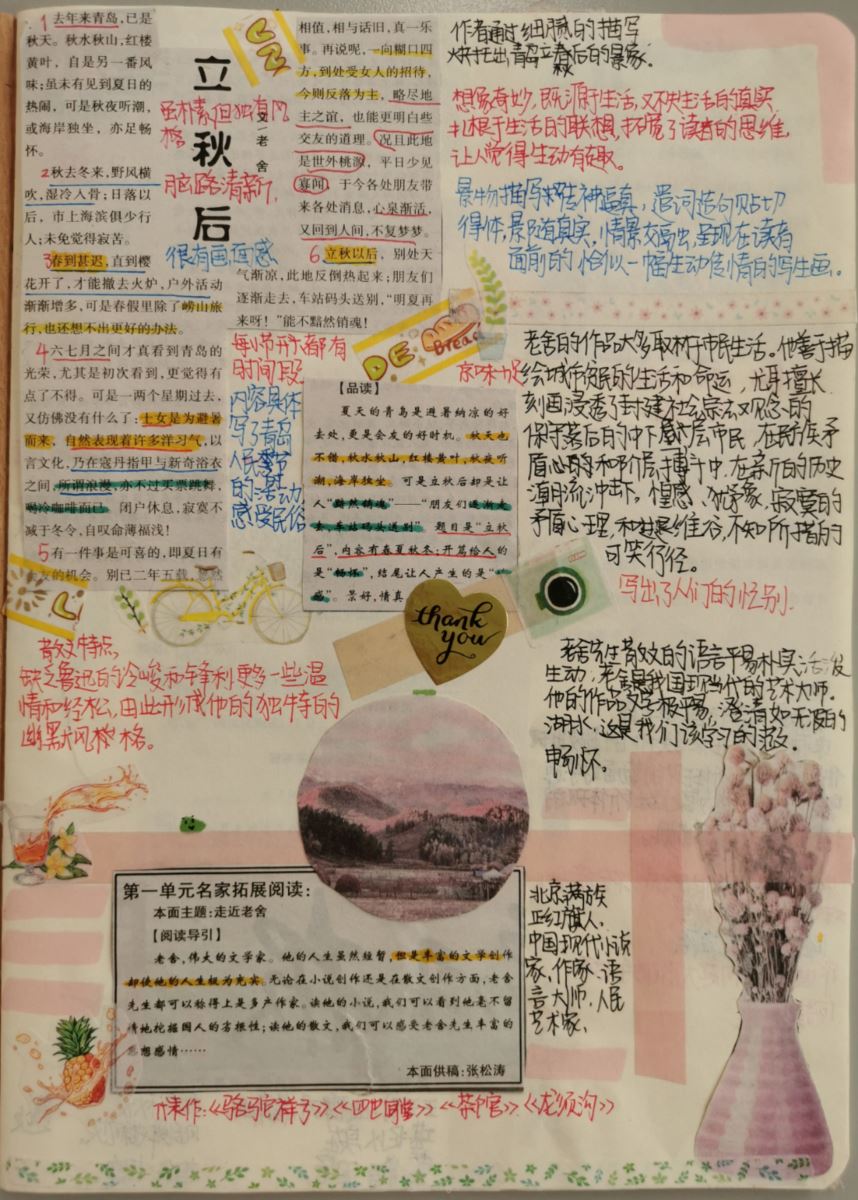 1 去年来青岛,已是
秋天。秋水秋山,红楼
黄叶,自是另一番风
味;虽未有见到夏日的
热闹,可是秋夜听潮,
或海岸独坐,亦足畅
怀。
2秋去冬来,野风横
吹,湿冷入骨;日落以
后,市上海滨俱少行
人;未免觉得寂苦。
3春到甚迟,直到樱
花开了,才能撤去火炉,户外活动
渐渐增多,可是春假里除了崂山旅
行,也还想不出更好的办法。
4六七月之间才真看到青岛的
光荣,尤其是初次看到,更觉得有
点了不得。可是一两个星期过去,
又仿佛没有什么了:士女是为避暑
而来,自然表现着许多洋习气,以
言文化,乃在寇丹指甲与新奇浴衣
之间,所谓浪漫,亦不过买票跳舞,
喝冷咖啡而已。闭户休息,寂寞不
减于冬令,自叹命薄福浅!
5有一件事是可喜的,即夏日有
会友的机会。别已二年五载,忽然
立秋后
文/老舍
虽朴素但独有风
格
脑路清新
很有画面感
相值,相与话旧,真一乐
事。再说呢,一向糊口四
方,到处受友人的招待,
今则反落为主,略尽地
主之谊,也能更明白些
交友的道理。况且此地
是世外桃源,平日少见
寡闻,于今各处朋友带
来各处消息,心泉渐活,
又回到人间,不复梦梦。
6 立秋以后,别处天
气渐凉,此地反倒热起来;朋友们
逐渐走去,车站码头送别,“明夏再
来呀!”能不黯然销魂!
DE
Bread
每小节开头都有
时间段
内容具体
写了青岛
人民季节
的活动
感受民俗
京味十足
【品读】
夏天的青岛是避暑纳凉的好
去处,更是会友的好时机。秋天也
不错,秋水秋山,红楼黄叶,秋夜听
潮,海岸独坐。可是立秋后却是让
人“黯然销魂”——“朋友们逐渐走
去,车站码头送别”。题目是“立秋
后”,内容有春夏秋冬;开篇给人的
是“畅怀”,结尾让人产生的是“
感”。景好,情真
thank
you
作者通过细腻的描写
烘托出青岛立秋后的景象。
想象奇妙,既源于生活,又不失生活的真实,
扎根于生活的联想,拓宽了读者的思维,
让人觉得生动有趣。
景物描写精神逼真,遣词造句贴切
得体,景段真实,情景交融,呈现在读者
面前的恰似一幅生动传情的写生画。
老舍的作品大多取材于市民生活。他善于描
绘城市贫民的生活和命运,尤其擅长
刻画浸透了封建社会宗法观念的
保守落后的中下层市民,在民族矛
盾和阶层搏斗中,在新的历史
潮流冲击下。惶惑、犹豫、寂寞的
矛盾心理,和进退维谷,不知所措的
可笑行径。
写出了人们的性别。
散文特点,
缺乏鲁迅的冷峻和锋利更多一些温
情和轻松,由此形成他的独特的
幽默风格。
老舍先生散文的语言平易朴实活泼
生动,老舍是我国现当代的艺术大师。
他的作品文字极平易,澄清如无波的
湖水,这是我们该学习的散文。
畅怀。
第一单元名家拓展阅读:
本面主题:走近老舍
【阅读导引】
老舍,伟大的文学家。他的人生虽然短暂,但是丰富的文学创作
却使他的人生极为充实。无论在小说创作还是在散文创作方面,老舍
先生都可以称得上是多产作家。读他的小说,我们可以看到他毫不留
情地挖掘国人的劣根性;读他的散文,我们可以感受老舍先生丰富的
思想感情……
本面供稿:张松涛
北京满族
正红旗人,
中国现代小说
家、作家、语
言大师、人民
艺术家、
代表作:《骆驼祥子》《四世同堂》《茶馆》《龙须沟》